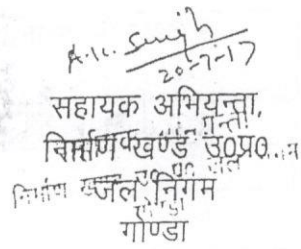 A.K. Singh
20-7-17
सहायक अभियन्ता,
निर्माण खण्ड उ0प्र0
जल निगम
गोण्डा